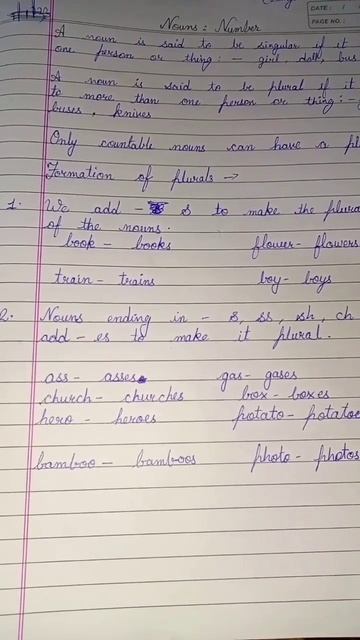 DATE: /
PAGE NO.:
Nouns: Number
A noun is said to be singular if it
one person or thing: - girl, doll, bus
A noun is said to be plural if it
to more than one person or thing: -
buses, knives
Only countable nouns can have a pl
Formation of plurals →
1. We add - s to make the plura
of the nouns.
book - books flower - flowers
train - trains boy - boys
2. Nouns ending in - s, ss, sh, ch
add - es to make it plural.
ass - asses gas - gases
church - churches box - boxes
hero - heroes potato - potatoe
bamboo - bamboos photo - photos